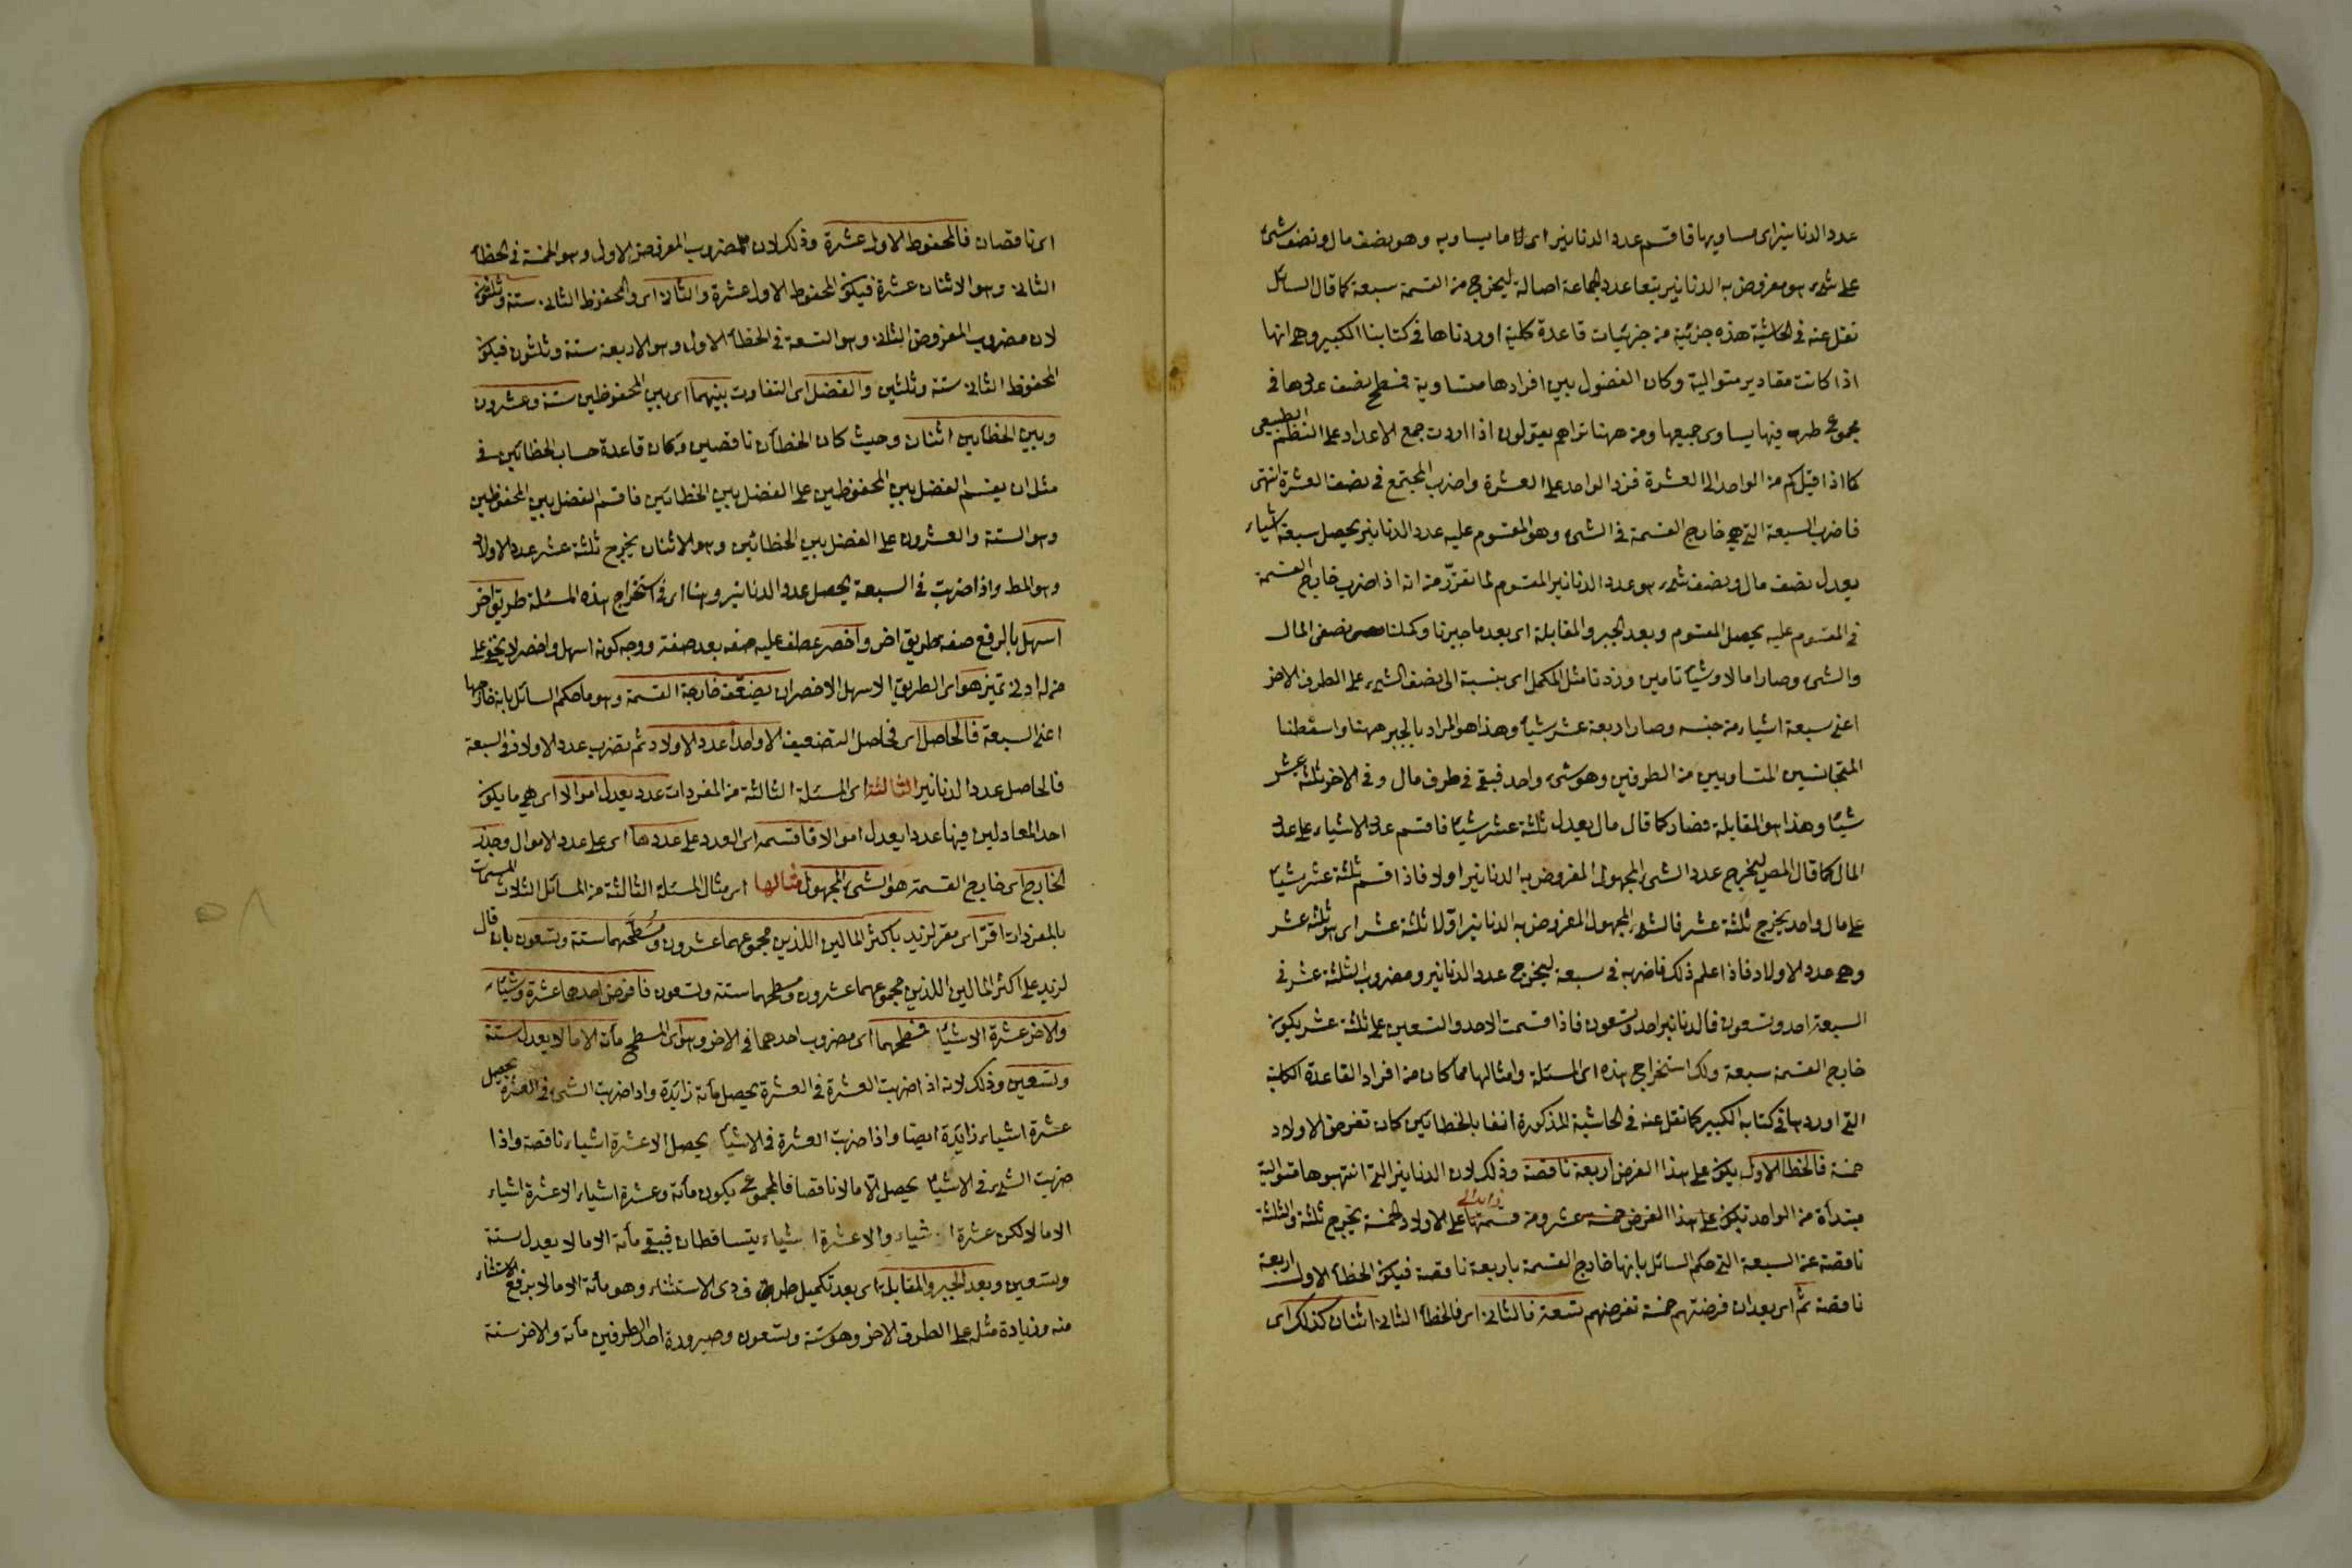 عدد الدنانير اى مساويها فاقسم عدد الدنانير اى ما يساويه وهو نصف مال ونصف شئ
على شئ هو مفروض به الدنانير يتعا عدد الجماعة اصالة ليخرج من القسمة سبعة كما قال السائل
نقل عنه فى الحاشية هذه جزئية من جزئيات قاعدة كلية اوردناها فى كتابنا الكبير وهى انها
اذا كانت مقادير متوالية وكان الفضول بين افرادها متساوية فسطح نصف عددها فى
مجموع طرفيها يساوى جميعها ومن ههنا تراهم يقولون اذا اردت جمع الاعداد على النظم الطبيعى
كما اذا قيل كم من الواحد الى العشرة فزد الواحد على العشرة واضرب المجتمع فى نصف العشرة انتهى
فاضرب السبعة التى هى خارج القسمة فى الشئ وهو المقسوم عليه عدد الدنانير يحصل سبعة اشياء
يعدل نصف مال ونصف شئ هو عدد الدنانير المقسوم لما تقرر من انه اذا ضرب خارج القسمة
فى المقسوم عليه يحصل المقسوم وبعد الجبر والمقابلة اى بعد ما جبرنا وكملنا نصفى المال
والشئ وصارا مالا وشيئا تامين وزدنا مثل المكمل اى بنسبة الى نصف الشئ على الطرف الاخر
اعنى سبعة اشياء من جنسه وصار اربعة عشر شيئا وهذا هو المراد بالجبر ههنا واسقطنا
المتجانسين المتساويين من الطرفين وهو شئ واحد فبقى فى طرف مال وفى الاخر ثلثة عشر
شيئا وهذا هو المقابلة فصار كما قال مال يعدل ثلثة عشر شيئا فاقسم عدد الاشياء على عدد
المال كما قال المص ليخرج عدد الشئ المجهول المفروض به الدنانير اولا فاذا قسم ثلثة عشر شيئا
على مال واحد يخرج ثلثة عشر فالشئ المجهول المفروض به الدنانير اولا ثلثة عشر اى هو ثلثة عشر
وهى عدد الاولاد فاذا اعلم ذلك فاضربه فى سبعة ليخرج عدد الدنانير ومضروب الثلثة عشر فى
السبعة احد وتسعون فالدنانير احد وتسعون فاذا قسمت الاحد والتسعين على ثلثة عشر يكون
خارج القسمة سبعة ولك استخراج هذه اى المسئلة وامثالها مما كان من افراد القاعدة الكلية
التى اوردها فى كتابه الكبير كما نقل عنه فى الحاشية المذكورة انفا بالخطائين كان تفرض الاولاد
خمسة فالخطا الاول يكون على هذا الفرض اربعة ناقصة وذلك لان الدنانير التى انتهبوها متوالية
مبتدأة من الواحد تكون على هذا الفرض خمسة عشر ومن قسمتها على الاولاد الخمسة يخرج ثلثة والثلثة
ناقصة عن السبعة التى حكم السائل بانها خارج القسمة باربعة ناقصة فيكون الخطأ الاول اربعة
ناقصة ثم اى بعد ان فرضتهم خمسة تفرضهم تسعة فالثانى اى فالخطأ الثانى اثنان كذلك اى
اى ناقصان فالمحفوظ الاول عشرة وذلك لان مضروب المفروض الاول وهو الخمسة فى الخطأ
الثانى وهو الاثنان عشرة فيكون المحفوظ الاول عشرة والثانى اى والمحفوظ الثانى ستة وثلثون
لان مضروب المفروض الثانى وهو التسعة فى الخطأ الاول وهو الاربعة ستة وثلثون فيكون
المحفوظ الثانى ستة وثلثين والفضل اى التفاوت بينهما اى بين المحفوظين ستة وعشرون
وبين الخطأين اثنان وحيث كان الخطأن ناقصين وكان قاعدة حساب الخطائين فى
مثله ان يقسم الفضل بين المحفوظين على الفضل بين الخطائين فاقسم الفضل بين المحفوظين
وهو الستة والعشرون على الفضل بين الخطائين وهو الاثنان يخرج ثلثة عشر عدد الاولاد
وهو المط واذا ضربت فى السبعة يحصل عدد الدنانير وهنا اى فى استخراج هذه المسئلة طريق اخر
اسهل بالرفع صفة طريق اخر واخصر عطف عليه صفة بعد صفة ووجه كونه اسهل واخصر لا يخفى على
من له ادنى تميز هو اى الطريق الاسهل الاخصر ان يضعف خارج القسمة وهو ما حكم السائل بانه خارجها
اعنى السبعة فالحاصل اى فحاصل التضعيف الا واحدا عدد الاولاد ثم تضرب عدد الاولاد فى السبعة
فالحاصل عدد الدنانير الثالثة اى المسئلة الثالثة من المفردات عدد يعدل اموالا اى هى ما يكون
احد المعادلين فيها عددا يعدل اموالا فاقسمه اى العدد على عددها اى على عدد الاموال وجذر
الخارج اى خارج القسمة هو الشئ المجهول مثالها اى مثال المسئلة الثالثة من المسائل الثلاث المسميات
بالمفردات اقرّ اى مقر لزيد باكثر المالين اللذين مجموعهما عشرون ومُسَطَّحهما ستة وتسعون بان قال
لزيد على اكثر المالين اللذين مجموعهما عشرون ومسطحهما ستة وتسعون فافرض احدهما عشرة وشيئا
والاخر عشرة الا شيئا فسطحهما اى مضروب احدهما فى الاخر وهو اى المسطح مأة الا مالا يعدل ستة
وتسعين وذلك لانه اذا ضربت العشرة فى العشرة يحصل مأة زايدة واذا ضربت الشئ فى العشرة يحصل
عشرة اشياء زايدة ايضا واذا ضربت العشرة فى الا شيئا يحصل الا عشرة اشياء ناقصة واذا
ضربت الشئ فى الا شيئا يحصل الا مالا ناقصا فالمجموع يكون مأة وعشرة اشياء الا عشرة اشياء
الا مالا لكن عشرة اشياء والا عشرة اشياء يتساقطان فيبقى مأة الا مالا يعدل ستة
وتسعين وبعد الجبر والمقابلة اى بعد تكميل طرف ذى الاستثناء وهو مأة الا مالا برفع الاستثناء
منه وزيادة مثله على الطرف الاخر وهو ستة وتسعون وصيرورة احد الطرفين مأة والاخر ستة